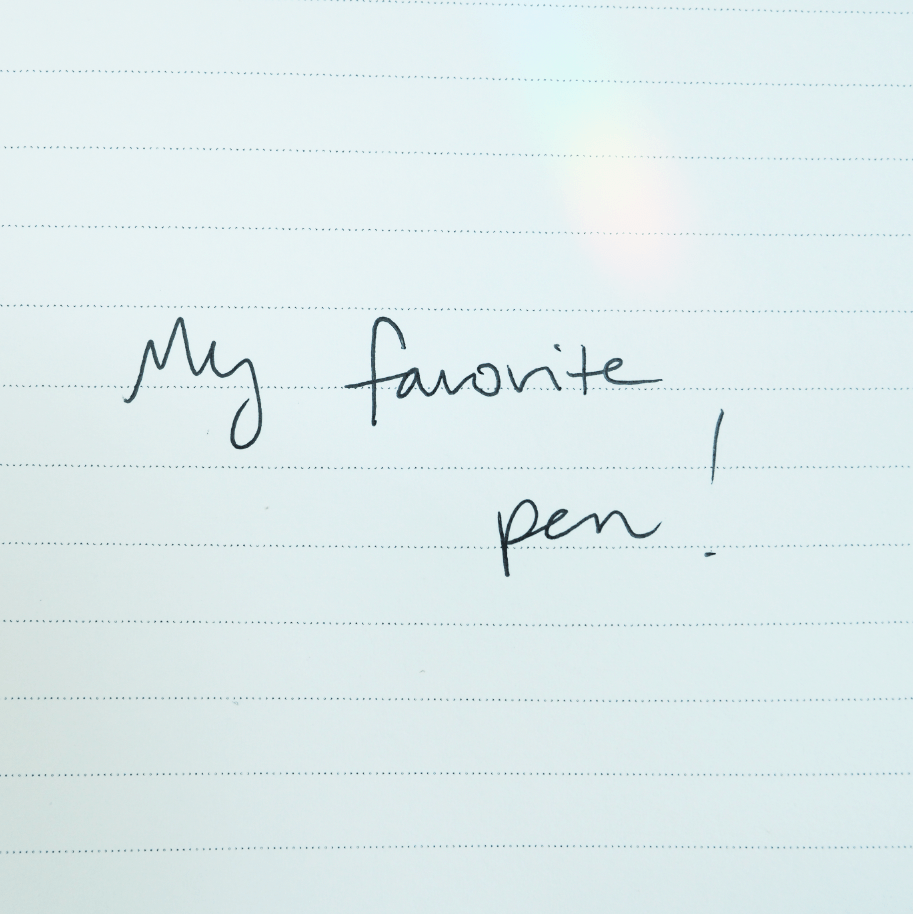 My favorite
pen!